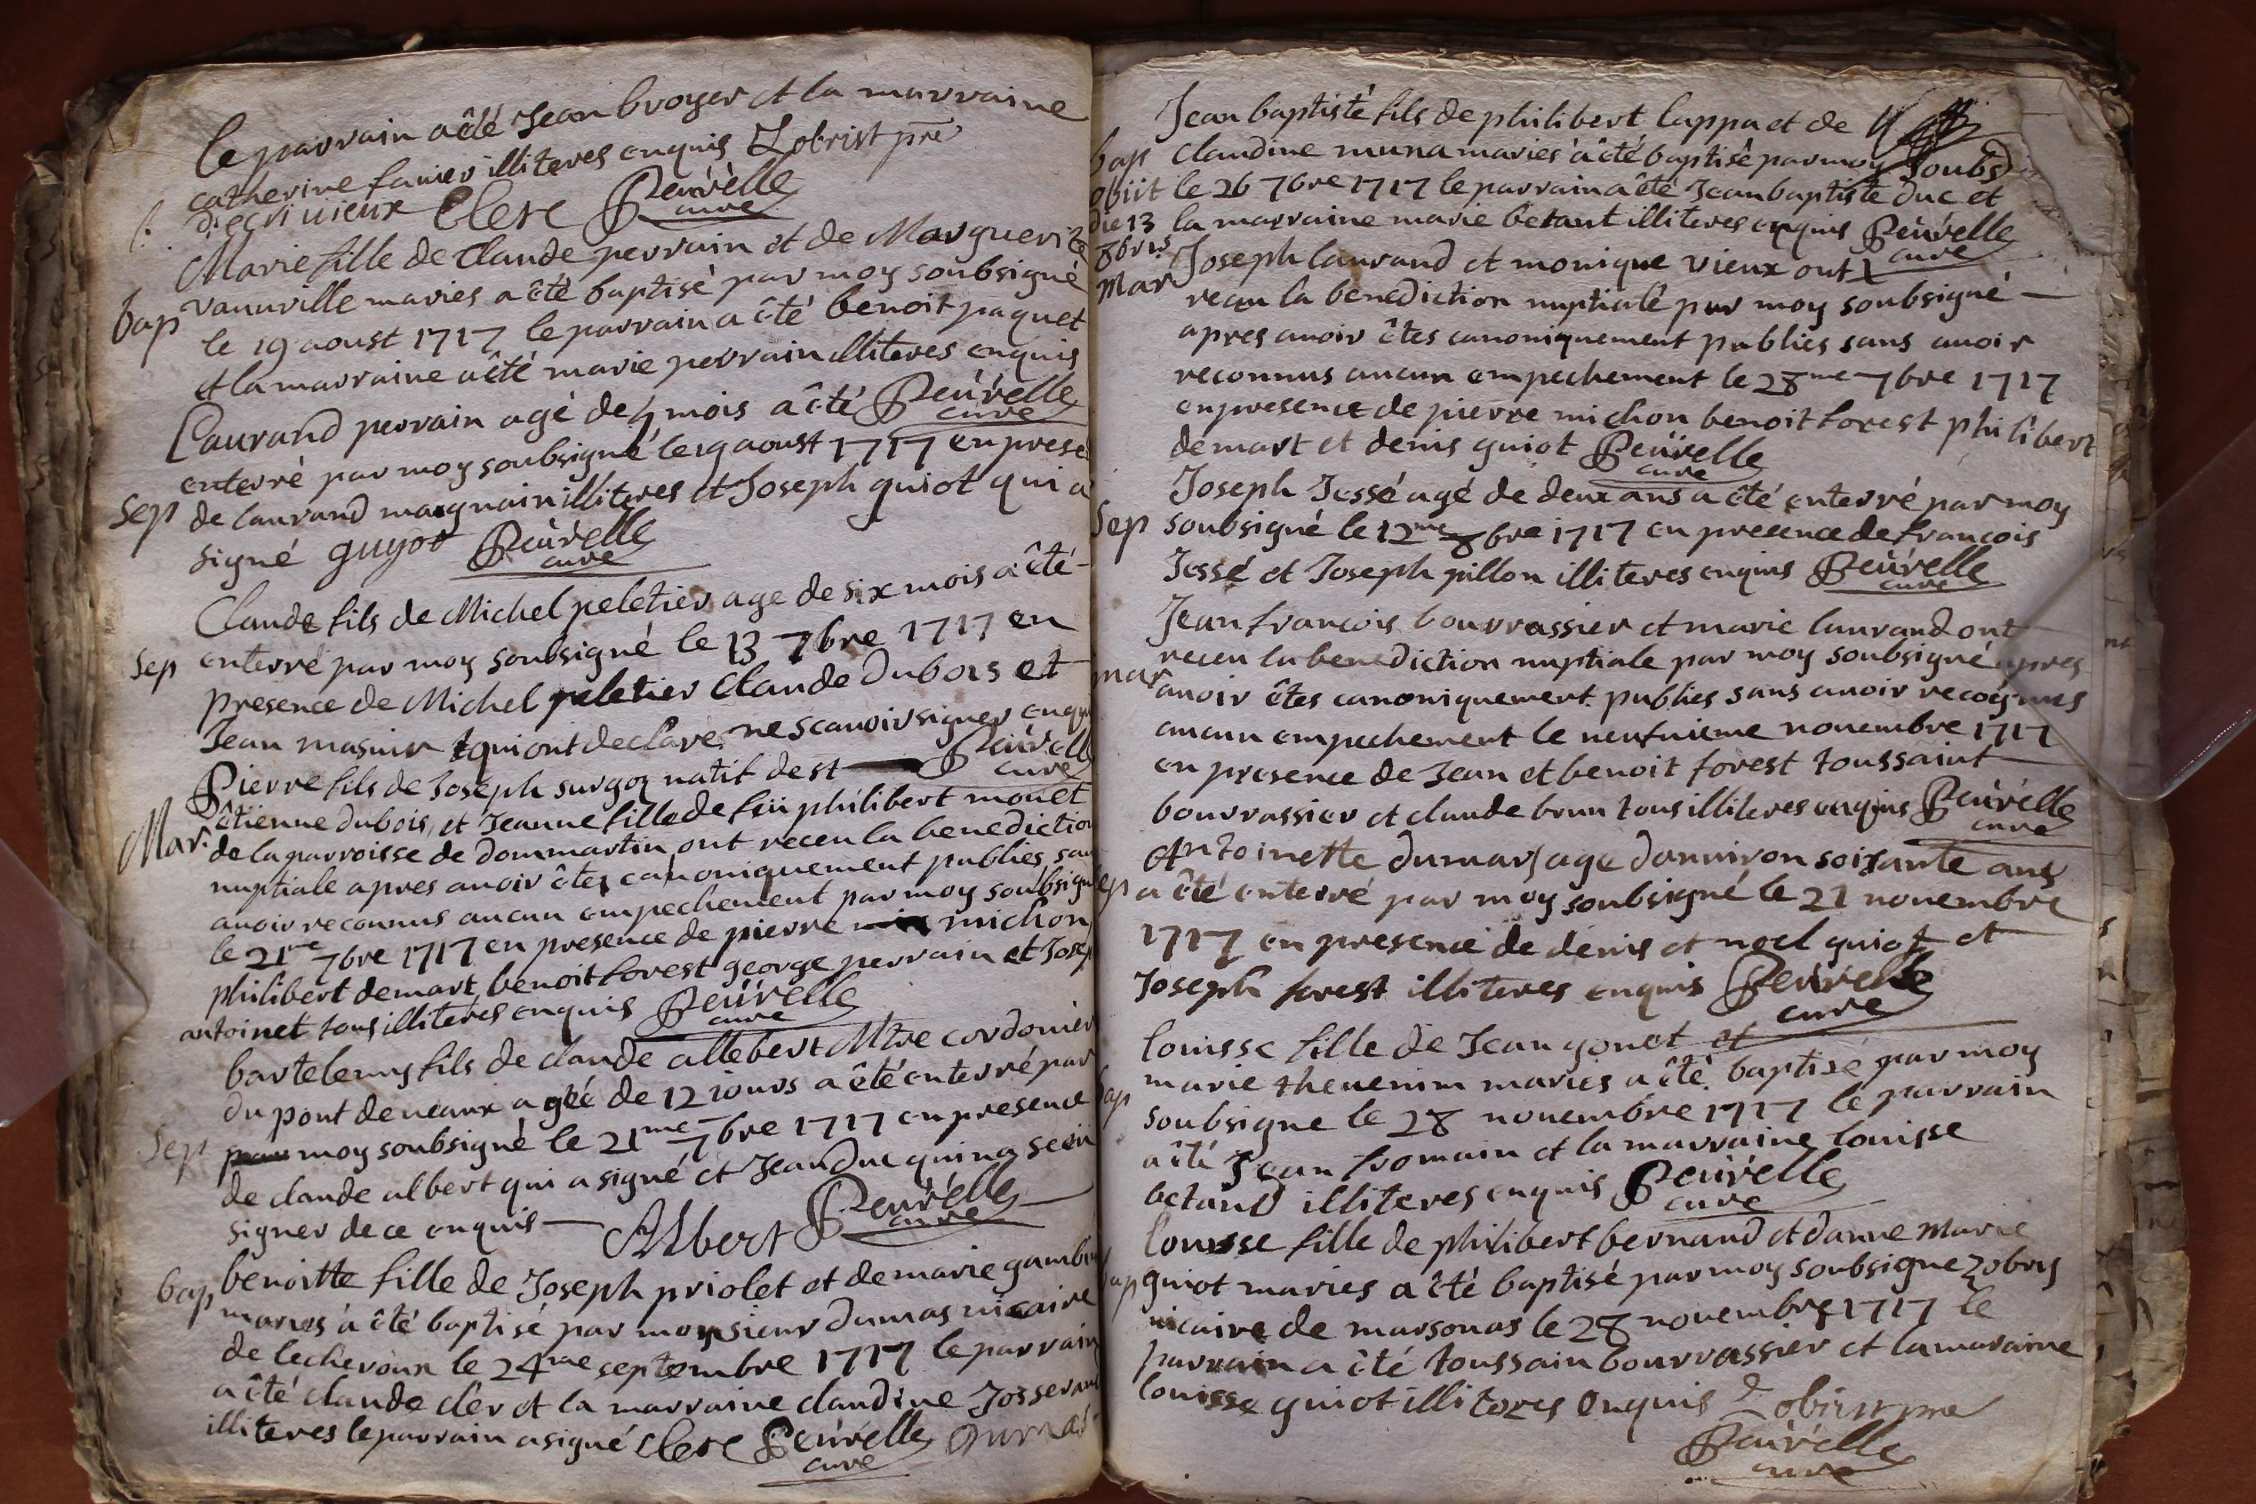 le parrain a êté Jean broyer et la marraine
catherine favier illiteres enquis Zobrist pre
Clerc Peuvrelle
curé
Marie fille de Claude perrain et de Marguerite
bap
vauuville maries a êté baptisé par moy soubsigné
le 19 aoust 1717 le parrain a êté benoit paquet
et la marraine a êté marie perrain illiteres enquis
Peuvrelle
curé
Laurand perrain agé de 4 mois a êté
enterré par moy soubsigné le 19 aoust 1717 en prese
Sep
de laurand magnain illiteres et Joseph guiot qui a
signé guyot Peuvrelle
curé
Claude fils de Michel peletier age de six mois a êté
Sep
enterré par moy soubsigné le 13 7bre 1717 en
presence de Michel peletier Claude Dubois et
Jean masuir qui ont declaré ne scauoir signer enqui
Peuvrelle
curé
Pierre fils de Joseph surgoy natif de st
Mar.
êtienne dubois, et Jeanne fille de feü philibert mouet
de la parroisse de dommartin ont receu la benediction
nuptiale apres auoir êtes canoniquement publies, san
auoir reconnus aucun empechement par moy soubsigne
le 21me 7bre 1717 en presence de pierre michon
philibert demart, benoit forest george perrain et Josep
antoinet tous illiteres enquis Peuvrelle
curé
bartelemy fils de claude allebert Mtre cordonier
du pont de ueaux agéé de 12 iours a êté enterré par
Sep
moy soubsigné le 21me 7bre 1717 en presence
de claude albert qui a signé et Jean Duc qui na sceu
signer de ce enquis Albert Peuvrelle
curé
bap
benoitte fille de Joseph priolet et de marie gambi
maries a êté baptisé par monsieur dumas uicaire
de lecheroux le 24me septembre 1717 le parrain
a êté claude cler et la marraine claudine Josserand
illiteres le parrain a signé Clerc Peuvrelle Dumas
curé
Jean baptiste fils de philibert Cappa et de
bap
Claudine muna maries a êté baptisé par moy soubs
obiit die 13 8bris
le 26 7bre 1717 le parrain a êté Jean baptiste Duc et
la marraine marie betant illiteres enquis Peuvrelle
curé
Mar
Joseph laurand et monique vieux ont
receu la benediction nuptiale par moy soubsigné
apres auoir êtes canoniquement publies sans auoir
reconnus aucun empechement le 28me 7bre 1717
en presence de pierre michon benoit forest philibert
demart et denis guiot Peuvrelle
curé
Joseph Jessé agé de deux ans a êté enterré par moy
Sep
soubsigné le 12me 8bre 1717 en presence de francois
Jessé et Joseph pillon illiteres enquis Peuvrelle
curé
Jean francois bourrassier et marie laurand ont
mar
receu la benediction nuptiale par moy soubsigné apres
auoir êtes canoniquement publies sans auoir recognus
aucun empechement le neufuieme nouembre 1717
en presence de Jean et benoit forest toussaint
bourrassier et claude brun tous illiteres enquis Peuvrelle
curé
Antoinette dumars age d'enuiron soixante ans
Sep
a êté enterré par moy soubsigné le 21 nouembre
1717 en presence de denis et noel guiot et
Joseph forest illiteres enquis Peuvrelle
curé
louisse fille de Jean gonet et
bap
marie theuenim maries a êté baptisé par moy
soubsigne le 28 nouembre 1717 le parrain
a êté Jean fromain et la marraine louisse
betand illiteres enquis Peuvrelle
curé
louisse fille de philibert bernand et danne Marie
bap
guiot maries a êté baptisé par moy soubsigne Zobrys
uicaire de marsonas le 28 nouembre 1717 le
parrain a êté toussain bourrassier et la maraine
louisse guiot illiteres enquis Zobrist pre
Peuvrelle
curé